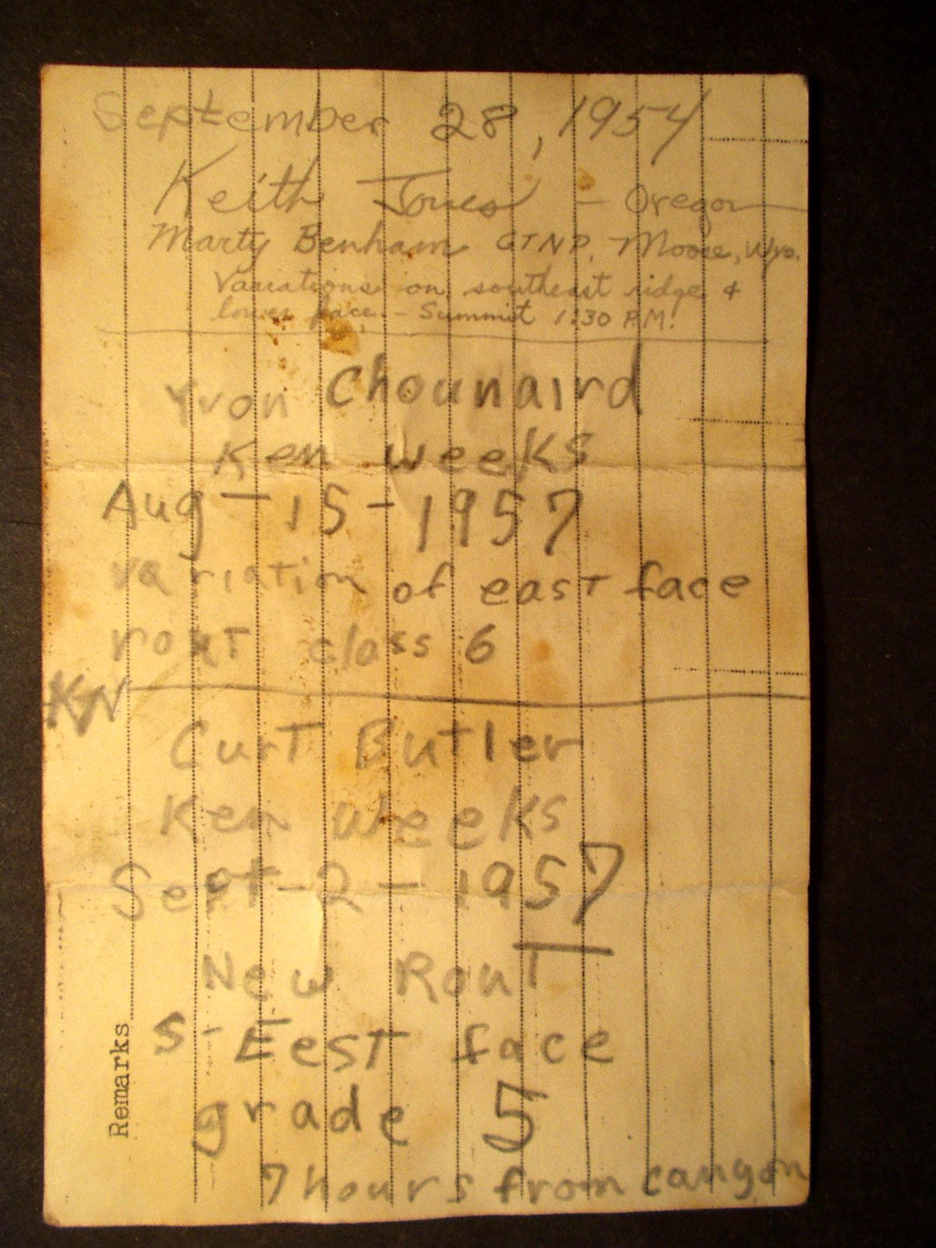 September 28, 1954
Keith Jones - Oregon
Marty Benham GTNP, Moose, Wyo.
Variations on southeast ridge &
lower face - Summit 1:30 P.M.
Yvon Chounaird
Ken Weeks
Aug-15-1957
variation of east face
rout class 6
KW
Curt Butler
Ken Weeks
Sept-2-1957
New Rout
S. Eest face
grade 5
7 hours from canyon
Remarks